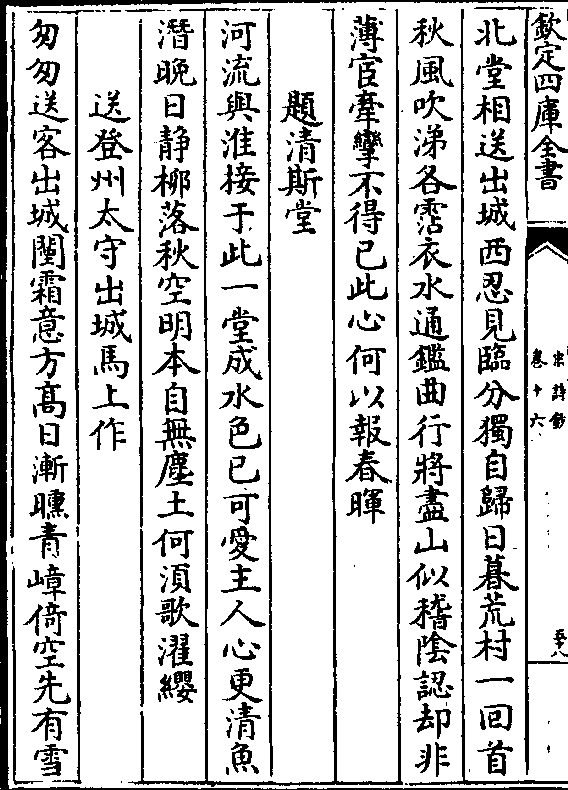 欽定四庫全書
宋詩鈔
卷十六
五十八
北堂相送出城西忍見臨分獨自歸日暮荒村一回首
秋風吹涕各霑衣水通鑑曲行將盡山似稽陰認却非
薄宦牽攣不得已此心何以報春暉
題清斯堂
河流與淮接于此一堂成水色已可愛主人心更清魚
潛晚日静栁落秋空明本自無塵土何湏歌濯纓
送登州太守出城馬上作
匆匆送客出城闉霜意方髙日漸曛青嶂倚空先有雪